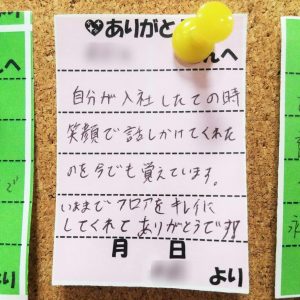 ありがとう
へ
自分が入社したての時
笑顔で話しかけてくれた
のを今でも覚えています。
いままでフロアをキレイに
してくれてありがとうです!!
月 日
より
より